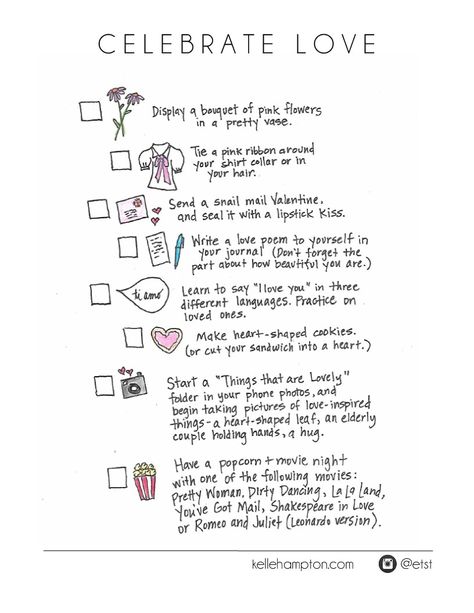 CELEBRATE LOVE
Display a bouquet of pink flowers
in a pretty vase.
Tie a pink ribbon around
your shirt collar or in
your hair.
Send a snail mail Valentine,
and seal it with a lipstick kiss.
Write a love poem to yourself in
your journal (Don't forget the
part about how beautiful you are.)
ti amo
Learn to say "I love you" in three
different languages. Practice on
loved ones.
Make heart-shaped cookies.
(or cut your sandwich into a heart.)
Start a "Things that are Lovely"
folder in your phone photos, and
begin taking pictures of love-inspired
things - a heart-shaped leaf, an elderly
couple holding hands, a hug.
Have a popcorn + movie night
with one of the following movies:
Pretty Woman, Dirty Dancing, La La Land,
You've Got Mail, Shakespeare in Love
or Romeo and Juliet (Leonardo version).
kellehampton.com @etst